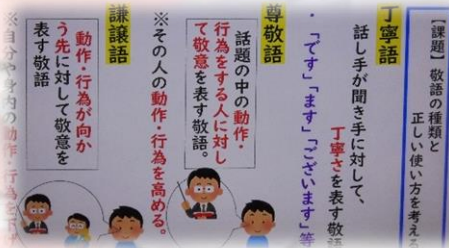 【課題】敬語の種類と
正しい使い方を考える
丁寧語
話し手が聞き手に対して、
丁寧さを表す敬語
・「です」「ます」「ございます」等
尊敬語
話題の中の動作・
行為をする人に対し
て敬意を表す敬語。
※その人の動作・行為を高める。
謙譲語
動作・行為が向か
う先に対して敬意を
表す敬語
※自分や身内の動作・行為を